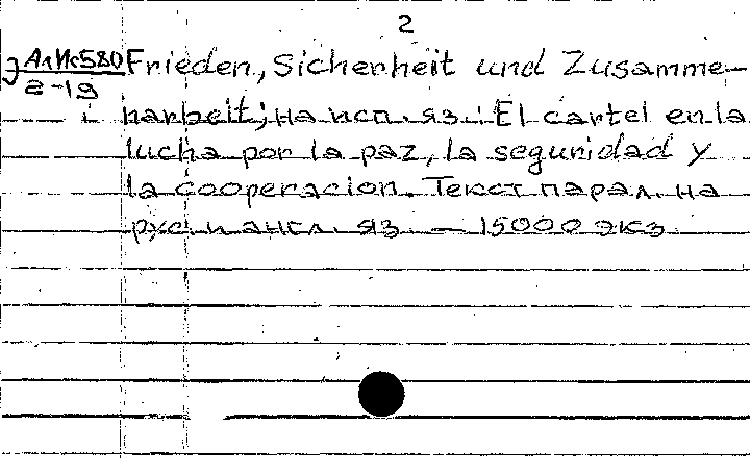 2
Э АлИс580 Frieden, Sicherheit und Zusamme-
2-19
narbeit; на исп. яз.: El cartel en la
lucha por la paz, la seguridad y
la cooperacion. Текст парал. на
рус. и англ. яз. — 15000 экз.